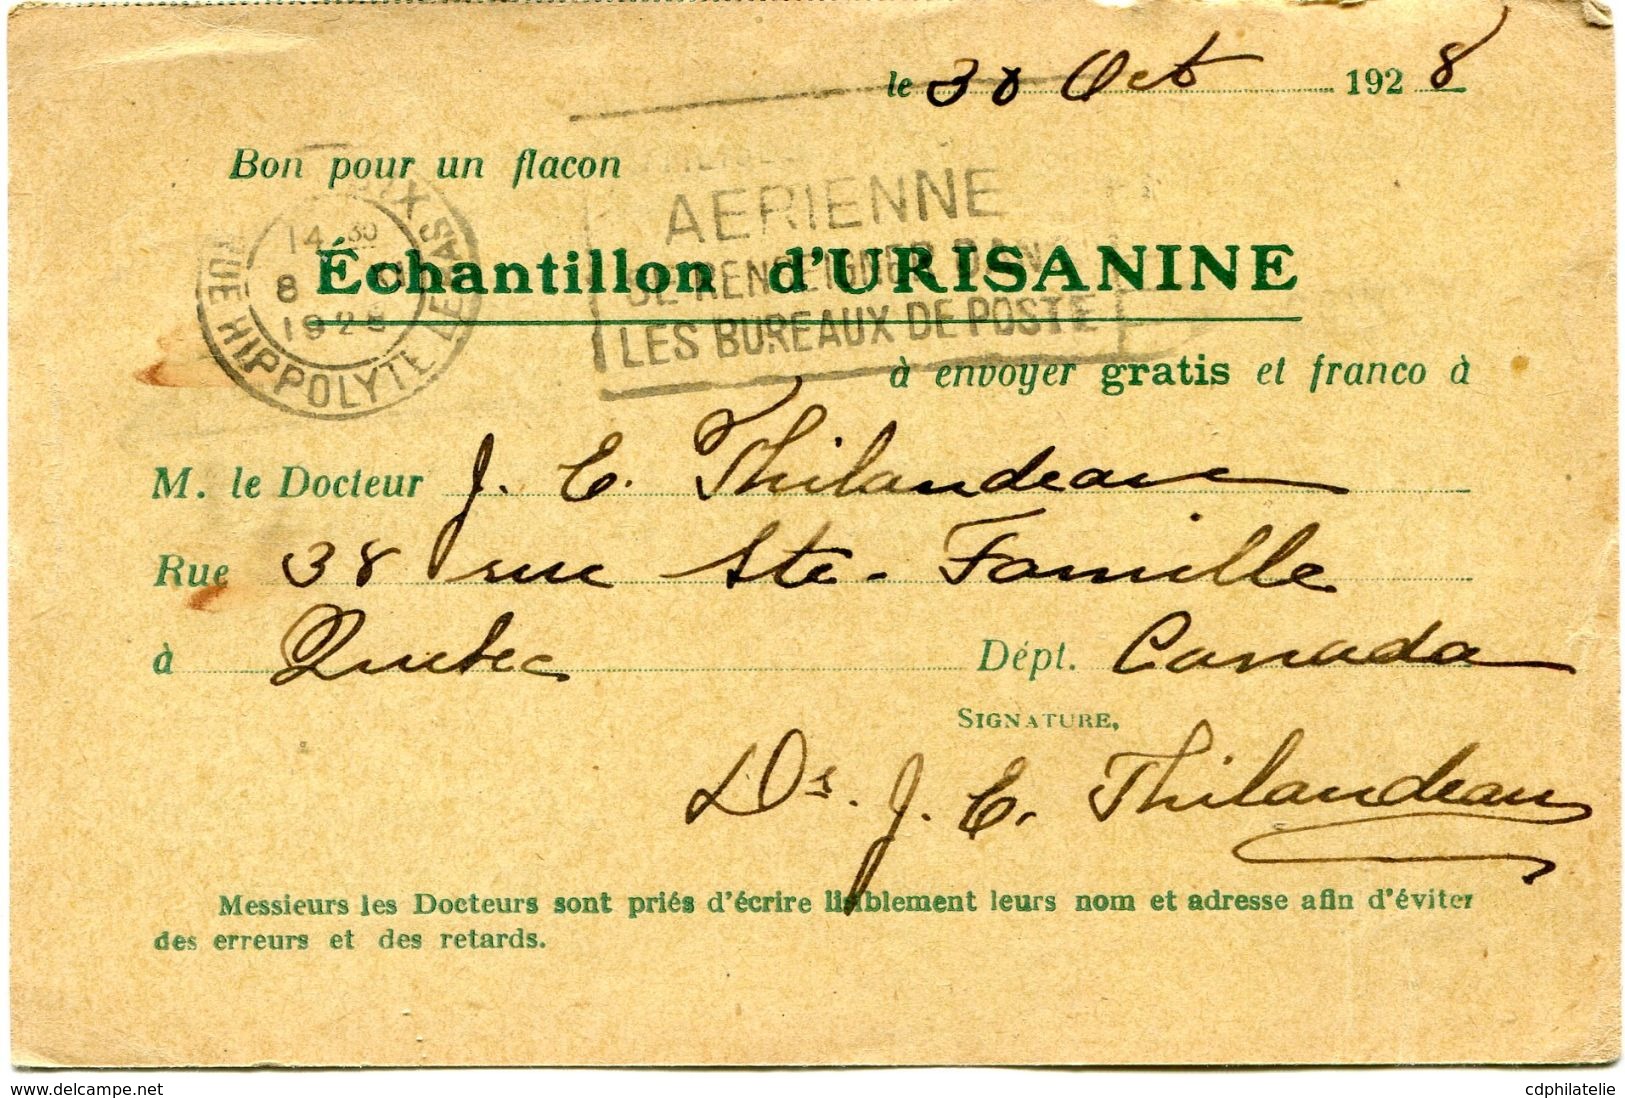 le 30 Oct 1928
Bon pour un flacon
AERIENNE
Échantillon d'URISANINE
SE RENSEIGNER DANS
LES BUREAUX DE POSTE
14 30
8
1928
RUE HIPPOLYTE LEBAS
à envoyer gratis et franco à
M. le Docteur J. E. Thilandeau
Rue 38 rue Ste-Famille
à Quebec Dépt. Canada
SIGNATURE,
Dr. J. E. Thilandeau
Messieurs les Docteurs sont priés d'écrire lisiblement leurs nom et adresse afin d'éviter
des erreurs et des retards.
www.delcampe.net
cdphilatelie